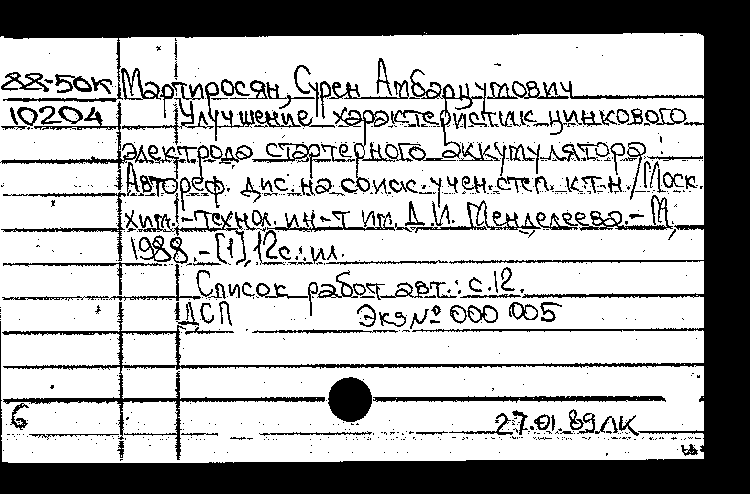 88-50к Мартиросян, Сурен Амбарцумович
10204 Улучшение характеристик цинкового
электрода стартерного аккумулятора :
Автореф. дис. на соиск. учен. степ. к.т.н. / Моск.
хим.-технол. ин-т им. Д.И. Менделеева. - М.,
1988. - [1], 12 с. : ил.
Список работ авт. : с. 12.
ДСП Экз № 000 005
6 27.01.89 ЛК